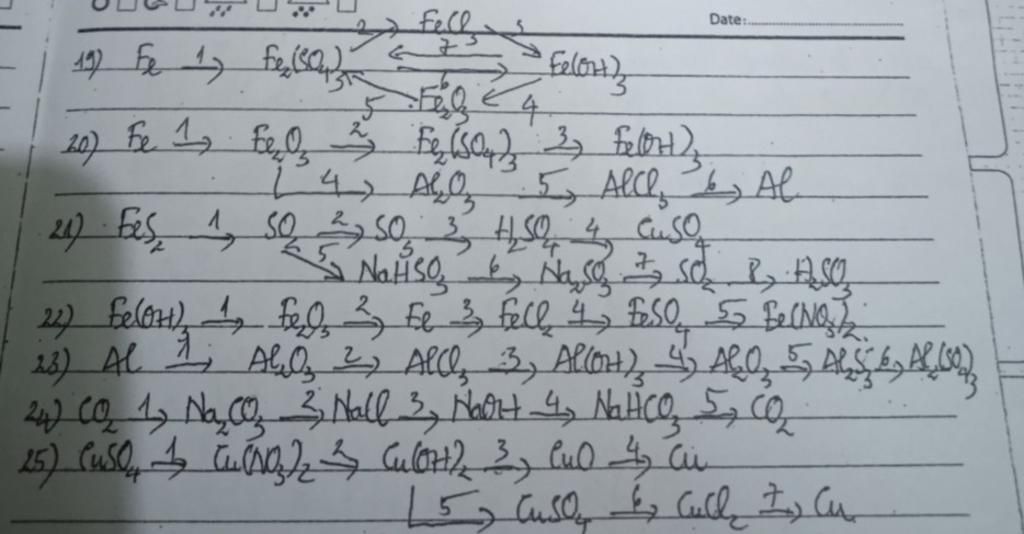 Date:
2 → FeCl3 3
19) Fe 1→ Fe2(SO4)3 7 6 Fe(OH)3
5 Fe2O3 4
20) Fe 1→ Fe2O3 2→ Fe2(SO4)3 3→ Fe(OH)3
4→ Al2O3 5→ AlCl3 6→ Al
21) FeS2 1→ SO 2→ SO3 3→ H2SO4 4→ CuSO4
5 NaHSO3 6→ Na2SO3 7→ SO2 8→ H2SO3
22) Fe(OH)3 1→ Fe2O3 2→ Fe 3→ FeCl2 4→ FeSO4 5→ Fe(NO3)2
23) Al 1→ Al2O3 2→ AlCl3 3→ Al(OH)3 4→ Al2O3 5→ Al2S3 6→ Al2(SO4)3
24) CO2 1→ Na2CO3 2→ NaCl 3→ NaOH 4→ NaHCO3 5→ CO2
25) CuSO4 1→ Cu(NO3)2 2→ Cu(OH)2 3→ CuO 4→ Cu
5→ CuSO4 6→ CuCl2 7→ Cu